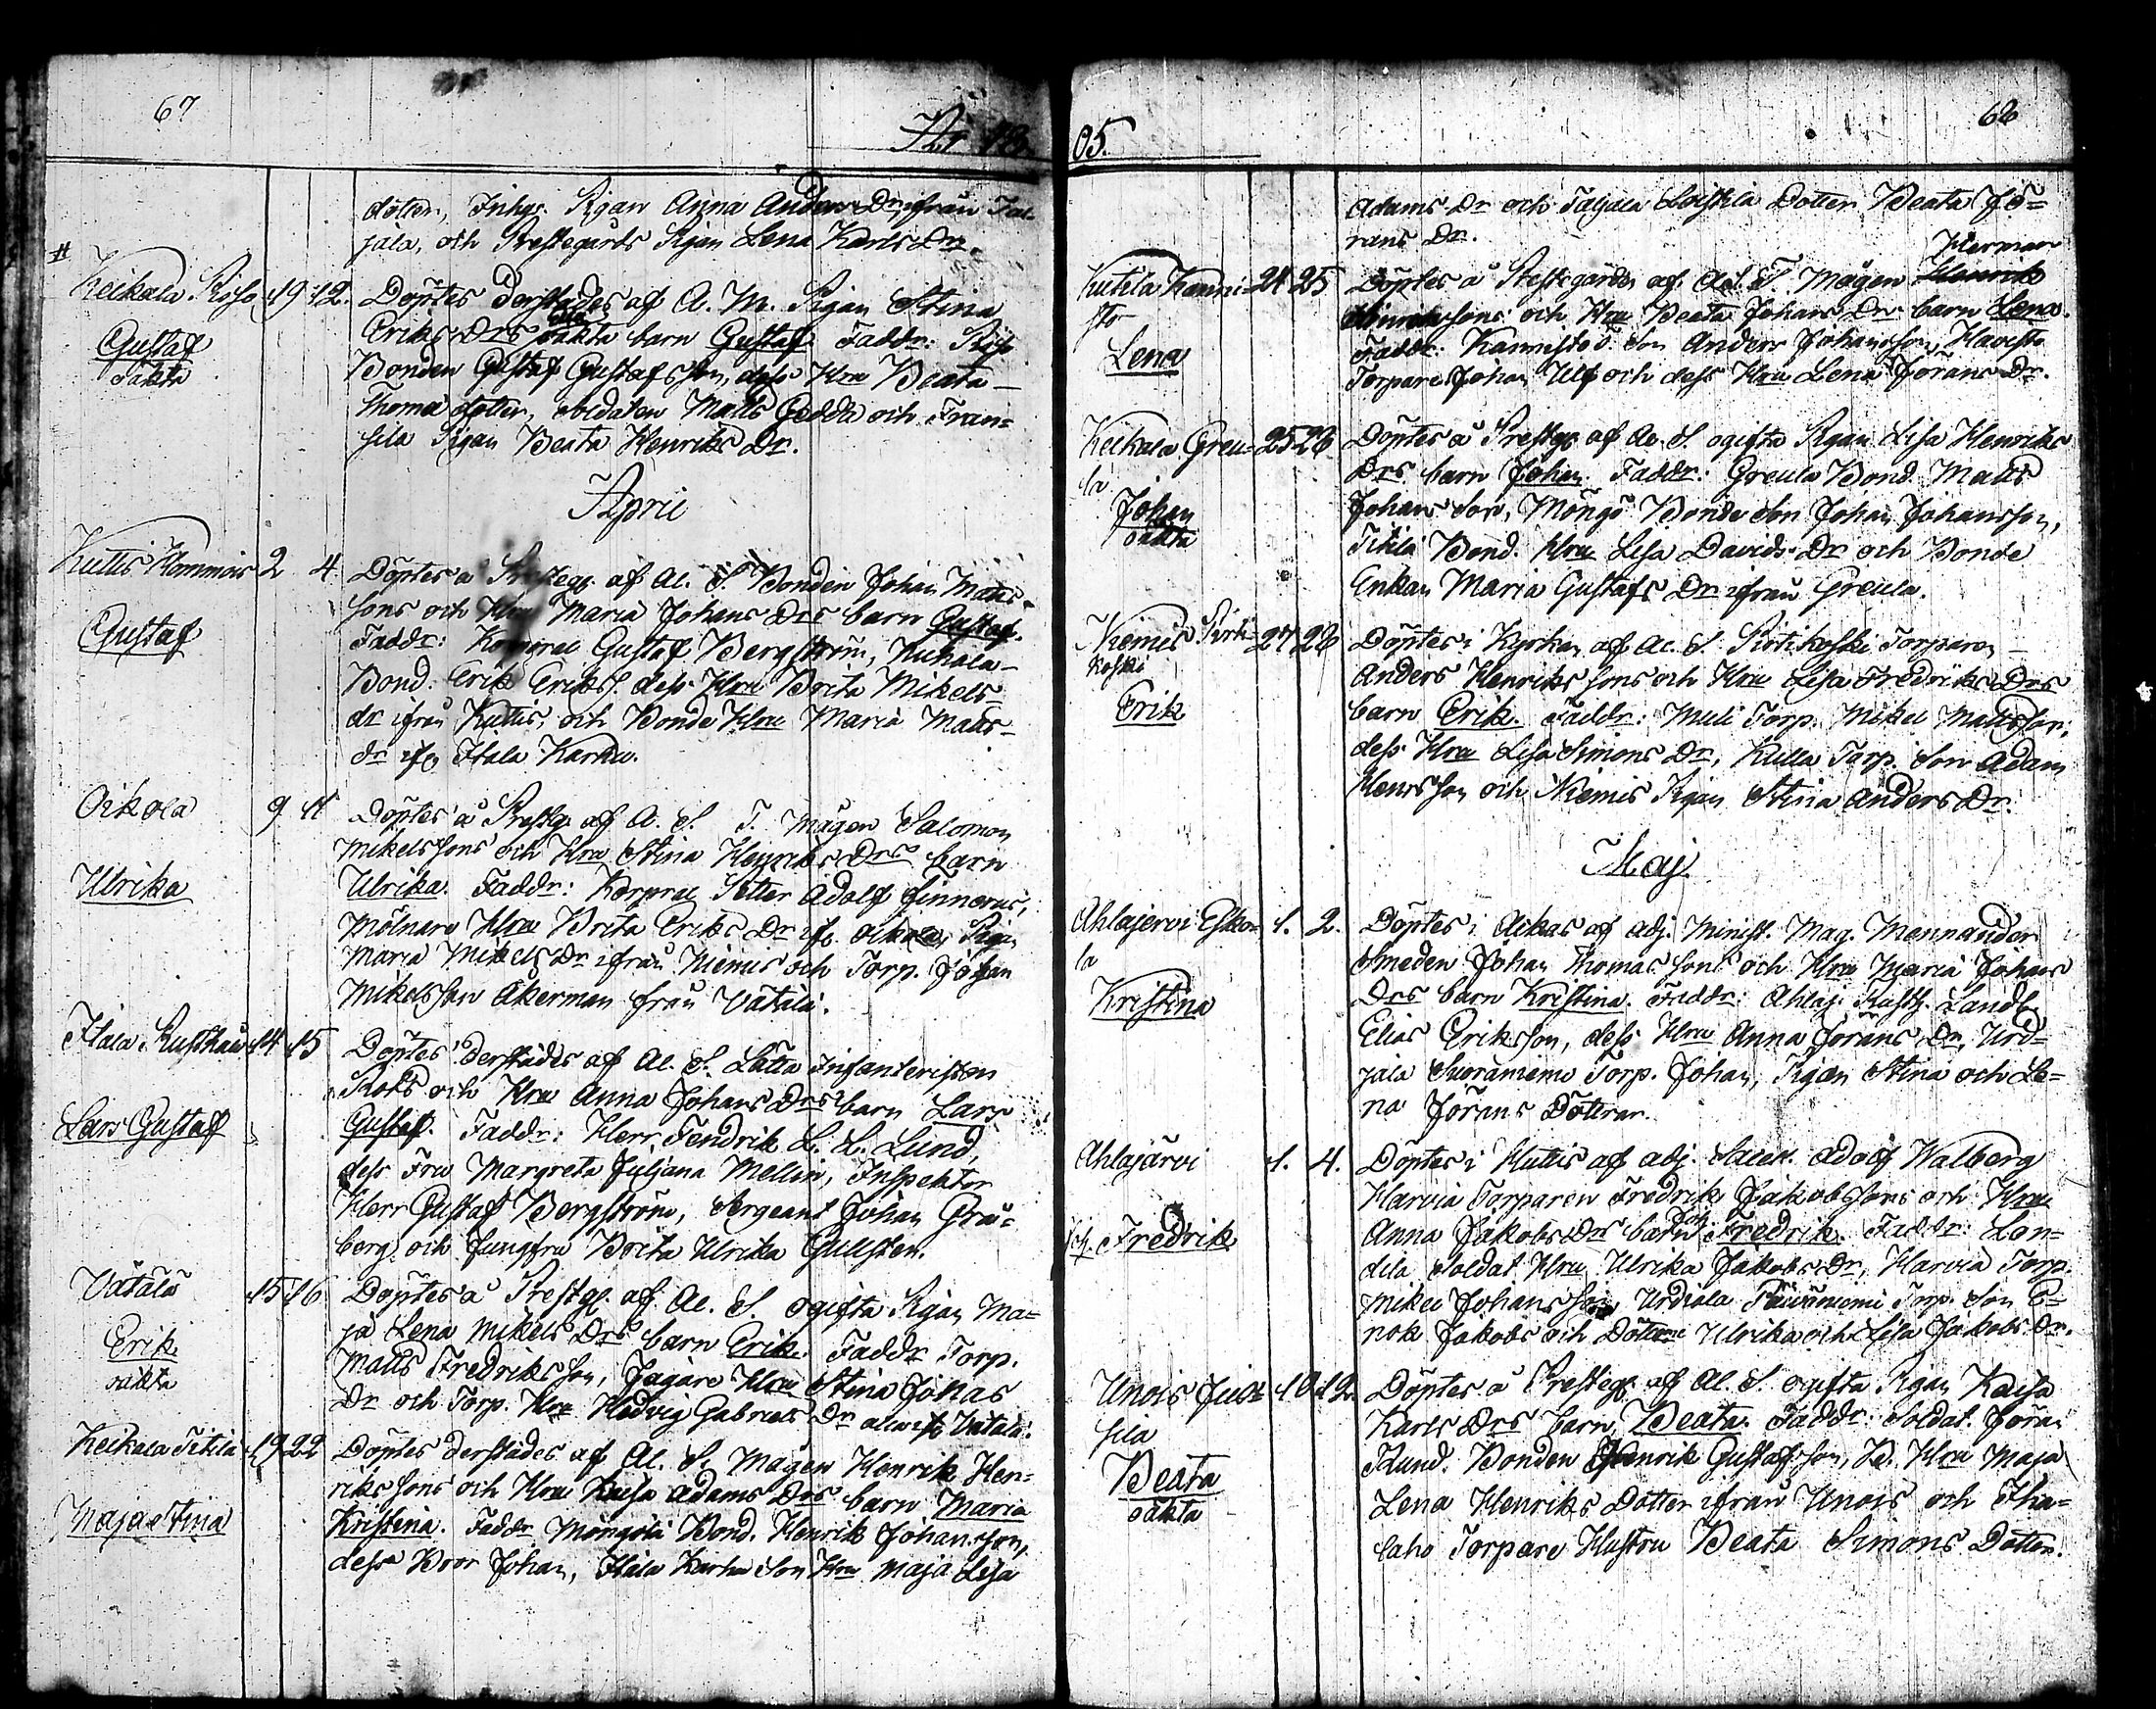 67
År 18
dotter, Inhys. Pigan Anna Anders Dr ifrån Tal-
jala, och Prestegårds Pigan Lena Karls Dr.
Keikala Riso 19 12. Döptes derstädes af A. M. Pigan Stina
Gustaf Eriks Drs oäkta barn Gustaf. Faddr: Riso
oäkta Bonden Gustaf Gustafsson, dess Hru Beata
Thomædotter, Soldaten Matts Gedda och Fran=
sila Pigan Beata Henriks Dr.
April
Kuttis Hommois 2 4 Döptes å Presteg. af Al. S. Bonden Johan Matts
sons och Hru Maria Johans Drs barn Gustaf.
Gustaf Faddr: Korporal Gustaf Bergström, Kukala
Bond: Erik Eriks S. dess Hru Brita Mikels
dr ifrån Kuttis, och Bonde Hru Maria Matts
dr ifr Itala Karhu.
Oikola 9 11 Döptes å Presteg. af A. S. T. Mågen Salomon
Mikelssons och Hru Stina Henriks Drs barn
Ulrika Ulrika. Faddr: Korpral Petter Adolf Finnerus,
Mölnare Hru Brita Eriks Dr ifr. Oikola, Pigan
Maria Mikels Dr ifrån Niemis och Torp. Johan
Mikelsson Åkerman från Vätälä.
Itala Rusthåll 14 15 Döptes derstädes af Al. S. Lätta Infanteristen
Roks och Hru Anna Johans Drs barn Lars
Lars Gustaf Gustaf. Faddr: Herr Fendrik L. L. Lund,
dess Fru Margreta Juljana Mellin, Inspektor
Herr Gustaf Bergström, Sergeant Johan Grå=
berg och Jungfru Brita Ulrika Gullsten.
Vätälä 15 16 Döptes å Presteg. af Al. S. ogifta Pigan Ma=
ja Lena Mikels Drs barn Erik. Faddr Torp.
Erik Matts Fredriksson, Jägare Hru Stina Johas
oäkta Dr och Torp. Hru Hedvig Gabriels Dr alla ifr Vätälä.
Keikala Titila 19 22 Döptes derstädes af Al. S. Mågen Henrik Hen=
rikssons och Hru Kaisa Adams Drs barn Maria
Maja Stina Kristina. Faddr Möngölä Bond. Henrik Johansson,
dess Bror Johan, Itala Karhu Son Hru Maja Lisa
05.
68
Adams Dr och Taljala Loistila Dotter Beata Jö=
rans Dr.
Herman
Kutila Kanni= 24 25 Döptes å Prestegården af Al. S. T. Mågen Henrik
sto Henrikssons och Hru Beata Johans Drs barn Lena.
Lena Faddr: Kannisto T. Son Anders Johansson, Havisto
Torpare Johan Ulf och dess Hru Lena Jörans Dr.
Keikala Greu= 25 26 Döptes å Presteg. af Al. S. ogifta Pigan Lisa Henriks
la Drs barn Johan. Faddr: Greula Bond. Matts
Johan Johans Son, Möngö Bonde Son Johan Johansson,
oäkta Titilä Bond. Hru Lisa Davids Dr och Bonde
Enkan Maria Gustafs Dr ifrån Greula.
Niemis Pirti 27 28 Döptes i Kyrkan af Al. S. Pirtikoski Torparen
koski Anders Henrikssons och Hru Lisa Fredriks Drs
Erik barn Erik. Faddr: Muli Torp. Mikel Mattsson,
dess Hru Lisa Simons Dr, Kulla Torp. Son Adam
Henrsson och Niemis Pigan Stina Anders Dr.
Maj.
Ahlajervi Esko= 1. 2. Döptes i Aikas af adj. Minist. Mag. Mennander
la Smeden Johan Thomas Sons och Hru Maria Johans
Kristina Drs barn Kristina. Faddr: Ahlaj. Rusth. Landb.
Elias Eriksson, dess Hru Anna Jörans Dr, Urd=
jala Tuoraniemi Torp. Johan, Pigan Stina och Le=
na Jörans Döttrar.
Ahlajärvi 1. 4. Döptes i Huttis af adj. Sacell. Adolf Walberg
Harvia Torparen Fredrik Jakobssons och Hru
Joh.
Joh. Fredrik Anna Jakobs Drs barn Fredrik. Faddr: Lon=
dila Soldat. Hru Ulrika Jakobs Dr, Harvia Torp.
Mikel Johansson, Urdiala Torp. Son E=
nok Jakobs och Döttrar Ulrika och Lisa Jakobs Dr.
Unois Jus= 10 12 Döptes å Presteg. af Al. S. ogifta Pigan Kaisa
sila Karls Drs barn Beata. Faddr: Soldat. Jöran
Beata Kund. Bonden Henrik Gustafsson, D. Hru Maja
oäkta Lena Henriks Dotter ifrån Unois och Iha=
laho Torpare Hustru Beata Simons Dotter.